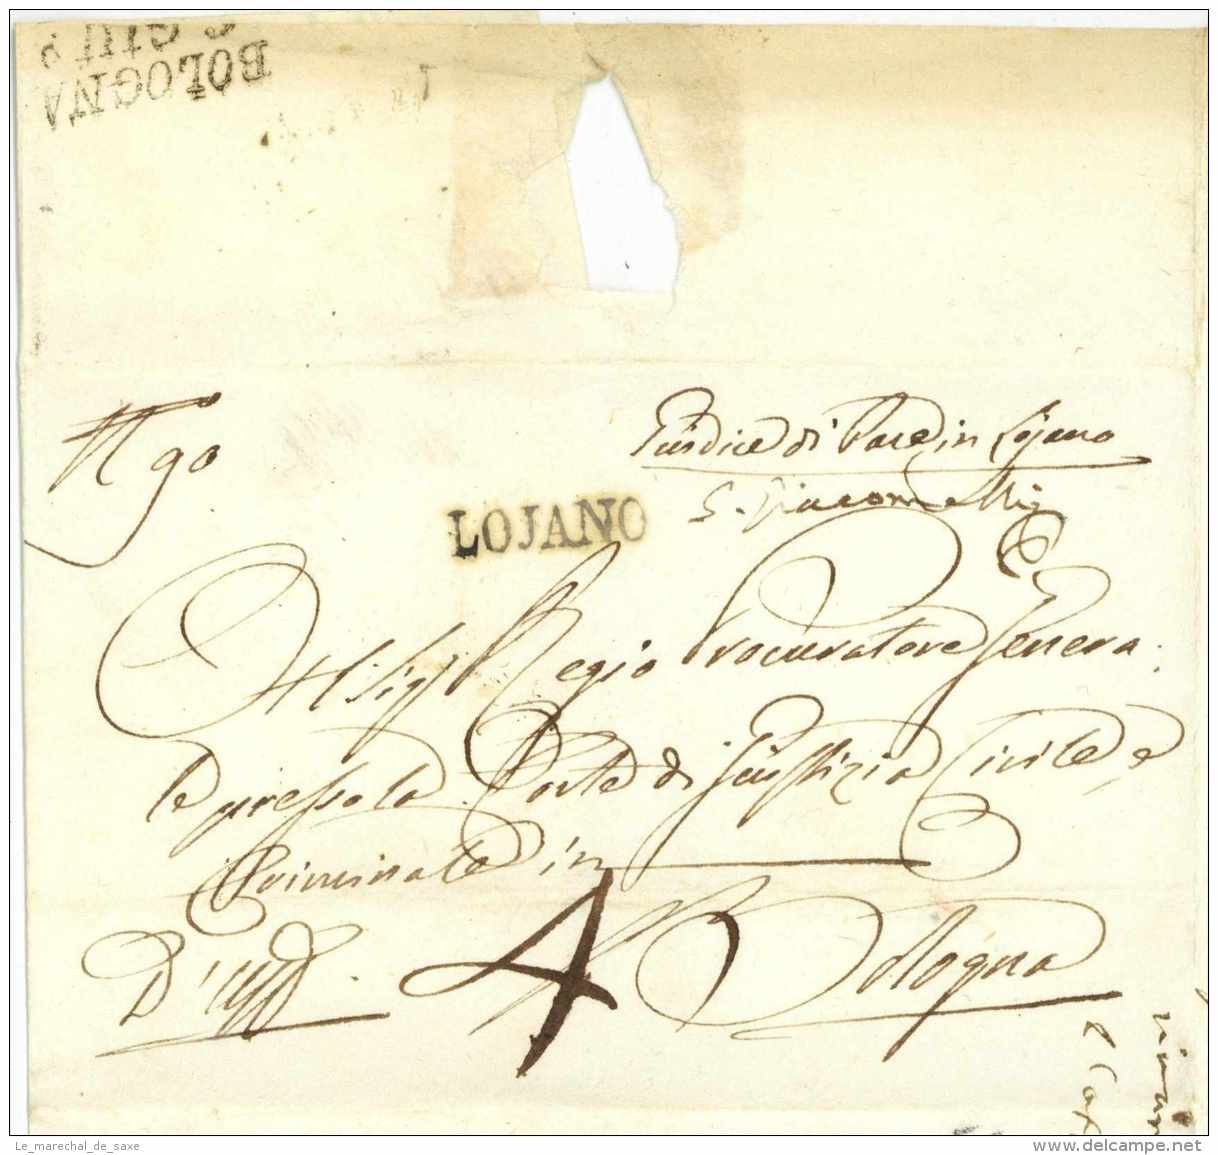 BOLOGNA
GIU
Giudice di Pace in Lojano
S. Giacomelli
LOJANO
Al Sigr Regio Procuratore Genera:
le presso la Corte di Giustizia Civile e
Criminale in
D'Uffo. 4 Bologna
Le_marechal_de_saxe
www.delcampe.net